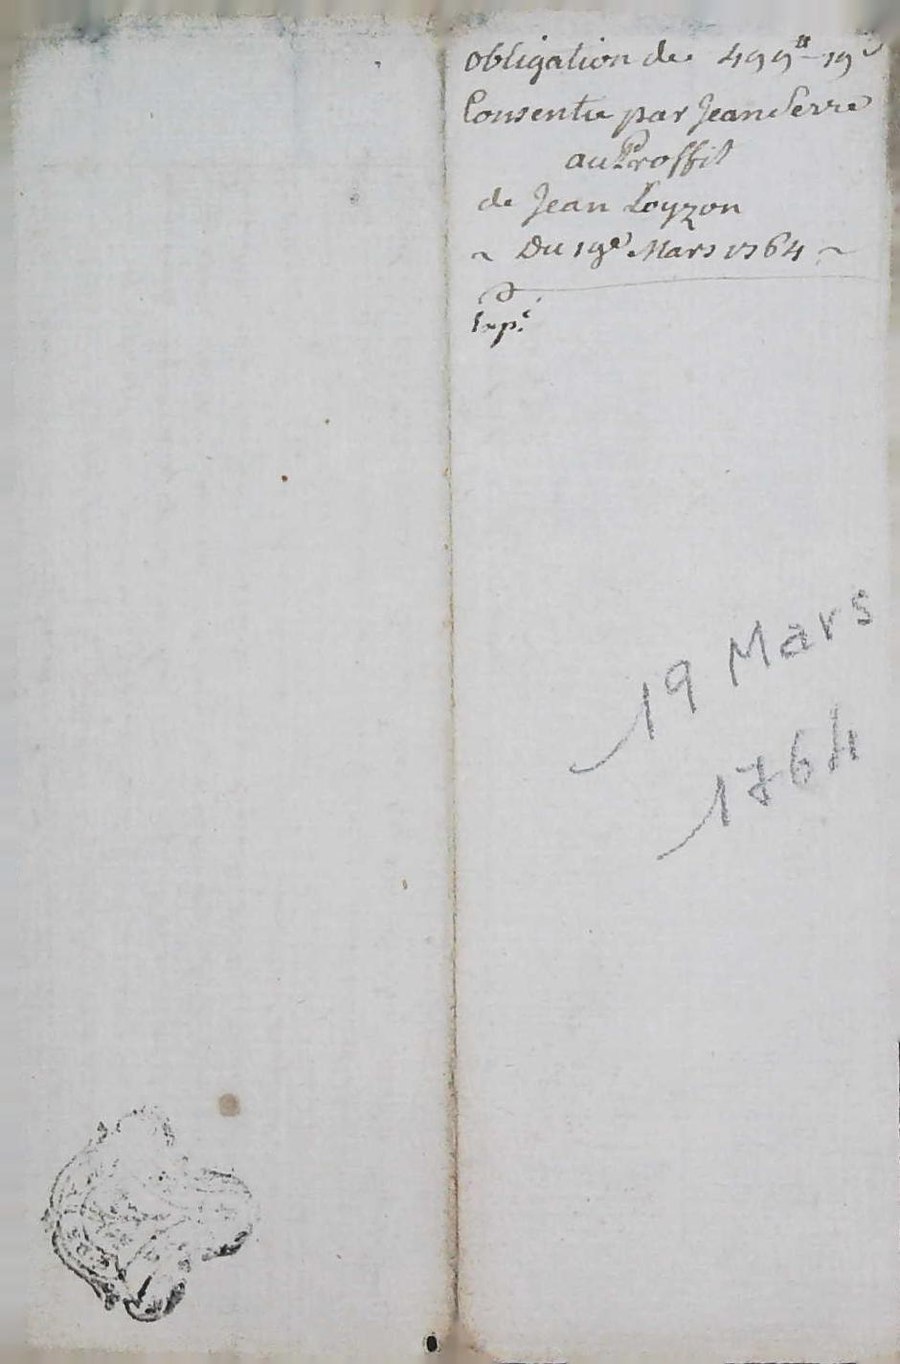 Obligation de 499#-19s
Consentie par Jean Serre
au Proffit
de Jean Loyzon
~ Du 19e Mars 1764 ~
Exp.e
19 Mars
1764